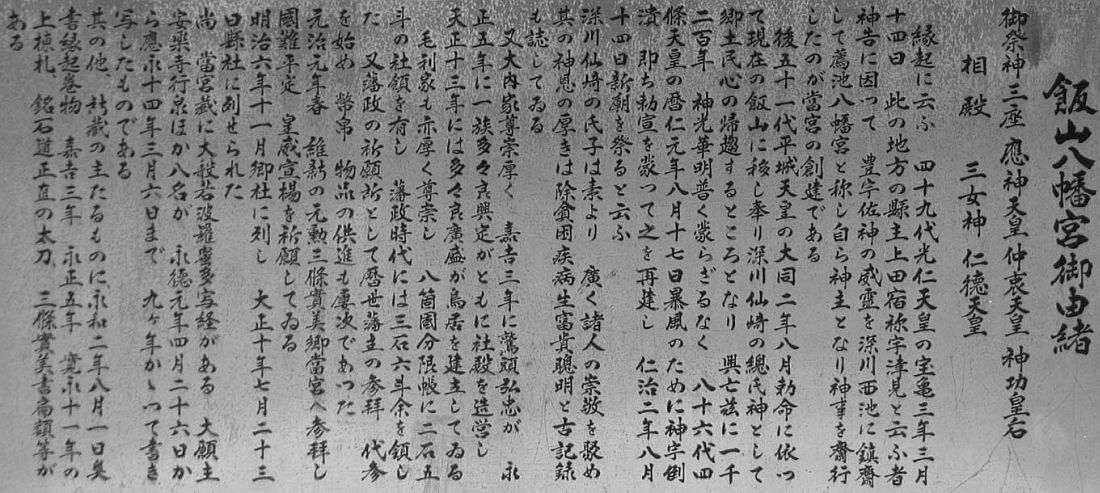 飯山八幡宮御由緒
御祭神三座 應神天皇 仲哀天皇 神功皇后
相殿 三女神 仁德天皇
縁起に云ふ 四十九代光仁天皇の宝亀三年三月
十四日 此の地方の縣主上田宿祢宇津見と云ふ者
神告に因つて 豊宇佐神の威霊を深川西池に鎮齋
して薦池八幡宮と称し自ら神主となり神事を齋行
したのが當宮の創建である
後五十一代平城天皇の大同二年八月勅命に依つ
て現在の飯山に移し奉り深川仙崎の總氏神として
郷土民心の帰趨するところとなり 興亡茲に一千
二百年 神光華明普く蒙らざるなく 八十六代四
條天皇の暦仁元年八月十七日暴風のために神宇倒
潰 即ち勅宣を蒙つて之を再建し 仁治二年八月
十四日新廟を祭ると云ふ
深川仙崎の氏子は素より 廣く諸人の崇敬を聚め
其の神恩の厚きは除貧困疾病生富貴聰明と古記録
も誌してゐる
又大内家尊崇厚く 嘉吉三年に鷲頭弘忠が 永
正五年に一族多々良興定がともに社殿を造営し
天正十三年には多々良廣盛が鳥居を建立してゐる
毛利家も亦厚く尊崇し 八箇國分限帳に二石五
斗の社領を有し 藩政時代には三石六斗余を領し
た 又藩政の祈願所として暦世藩主の参拜 代参
を始め 幣帛 物品の供進も屢次であつた
元治元年春 維新の元勲三條實美卿當宮へ参拜し
國難平定 皇威宣揚を祈願してゐる
明治六年十一月郷社に列し 大正十年七月二十三
日縣社に列せられた
尚 當宮蔵に大般若波羅蜜多写経がある 大願主
安樂寺行泉ほか八名が 永德元年四月二十六日か
ら應永十四年三月六日まで 九ヶ年かゝつて書き
写したものである
其の他 社蔵の主たるものに永和二年八月一日奥
書縁起巻物 嘉吉三年 永正五年 寛永十一年の
上棟札 銘石道正直の太刀 三條實美書扁額等が
ある